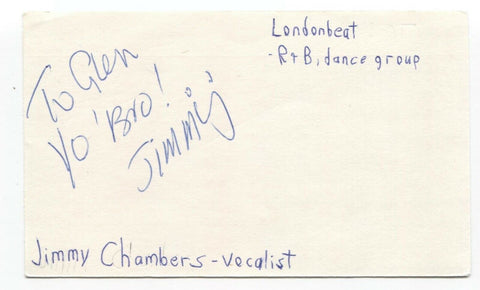 Londonbeat
-R+B, dance group
To Glen
Yo' Bro!
Jimmy
Jimmy Chambers - vocalist